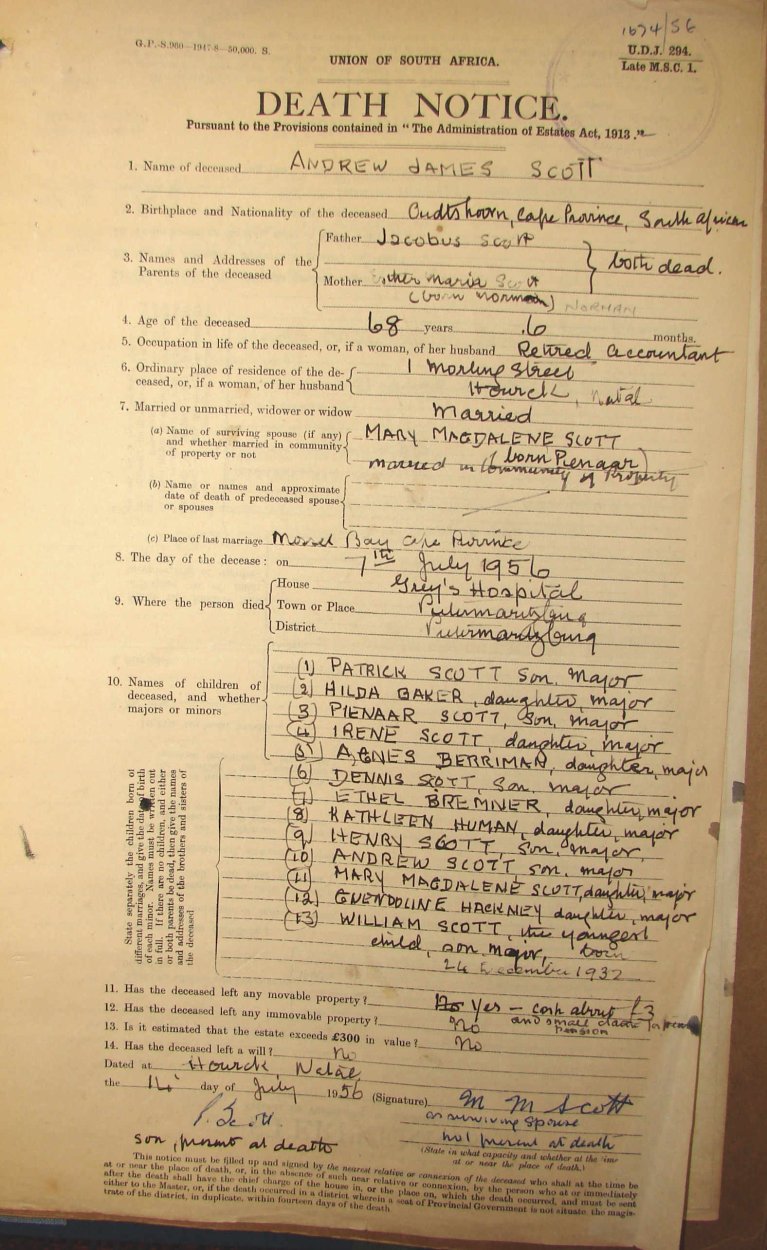 1674/56
G.P.-S.960—1947-8—50,000. S.
U.D.J. 294.
Late M.S.C. 1.
UNION OF SOUTH AFRICA.
DEATH NOTICE.
Pursuant to the Provisions contained in "The Administration of Estates Act, 1913."
1. Name of deceased ANDREW JAMES SCOTT
2. Birthplace and Nationality of the deceased Oudtshoorn, Cape Province, South African
3. Names and Addresses of the Parents of the deceased
Father Jacobus Scott
both dead.
Mother Esther Maria Scott
(born Norman) NORMAN
4. Age of the deceased 68 years 6 months.
5. Occupation in life of the deceased, or, if a woman, of her husband Retired Accountant
6. Ordinary place of residence of the de-
ceased, or, if a woman, of her husband
1 Morling Street
Howick, Natal
7. Married or unmarried, widower or widow Married
(a) Name of surviving spouse (if any)
and whether married in community
of property or not
MARY MAGDALENE SCOTT
(born Pienaar)
married in Community of Property
(b) Name or names and approximate
date of death of predeceased spouse
or spouses
(c) Place of last marriage Mossel Bay Cape Province
8. The day of the decease: on 7th July 1956
9. Where the person died
House Grey's Hospital
Town or Place Pietermaritzburg
District Pietermaritzburg
10. Names of children of
deceased, and whether
majors or minors
State separately the children born of
different marriages, and give the date of birth
of each minor. Names must be written out
in full. If there are no children, and either
or both parents be dead, then give the names
and addresses of the brothers and sisters of
the deceased
(1) PATRICK SCOTT Son, Major
(2) HILDA BAKER, daughter, major
(3) PIENAAR SCOTT, Son, major
(4) IRENE SCOTT, daughter, major
(5) AGNES BERRIMAN, daughter, major
(6) DENNIS SCOTT, Son, major
(7) ETHEL BREMNER, daughter, major
(8) KATHLEEN HUMAN, daughter, major
(9) HENRY SCOTT, Son, major,
(10) ANDREW SCOTT, son, major
(11) MARY MAGDALENE SCOTT, daughter, major
(12) GWENDOLINE HACKNEY daughter, major
(13) WILLIAM SCOTT, the youngest
child, son, major, born
24 December 1932
11. Has the deceased left any movable property? No Yes – cash about £3
and small claim for pension
12. Has the deceased left any immovable property? No
13. Is it estimated that the estate exceeds £300 in value? No
14. Has the deceased left a will? No
Dated at Howick, Natal
the 14 day of July 1956 (Signature) M M Scott
P. Scott.
as surviving spouse
son, present at death
not present at death
(State in what capacity and whether at the time
at or near the place of death.)
This notice must be filled up and signed by the nearest relative or connexion of the deceased who shall at the time be
at or near the place of death, or, in the absence of such near relative or connexion, by the person who at or immediately
after the death shall have the chief charge of the house in, or the place on, which the death occurred, and must be sent
either to the Master, or, if the death occurred in a district wherein a seat of Provincial Government is not situate, the magis-
trate of the district, in duplicate, within fourteen days of the death